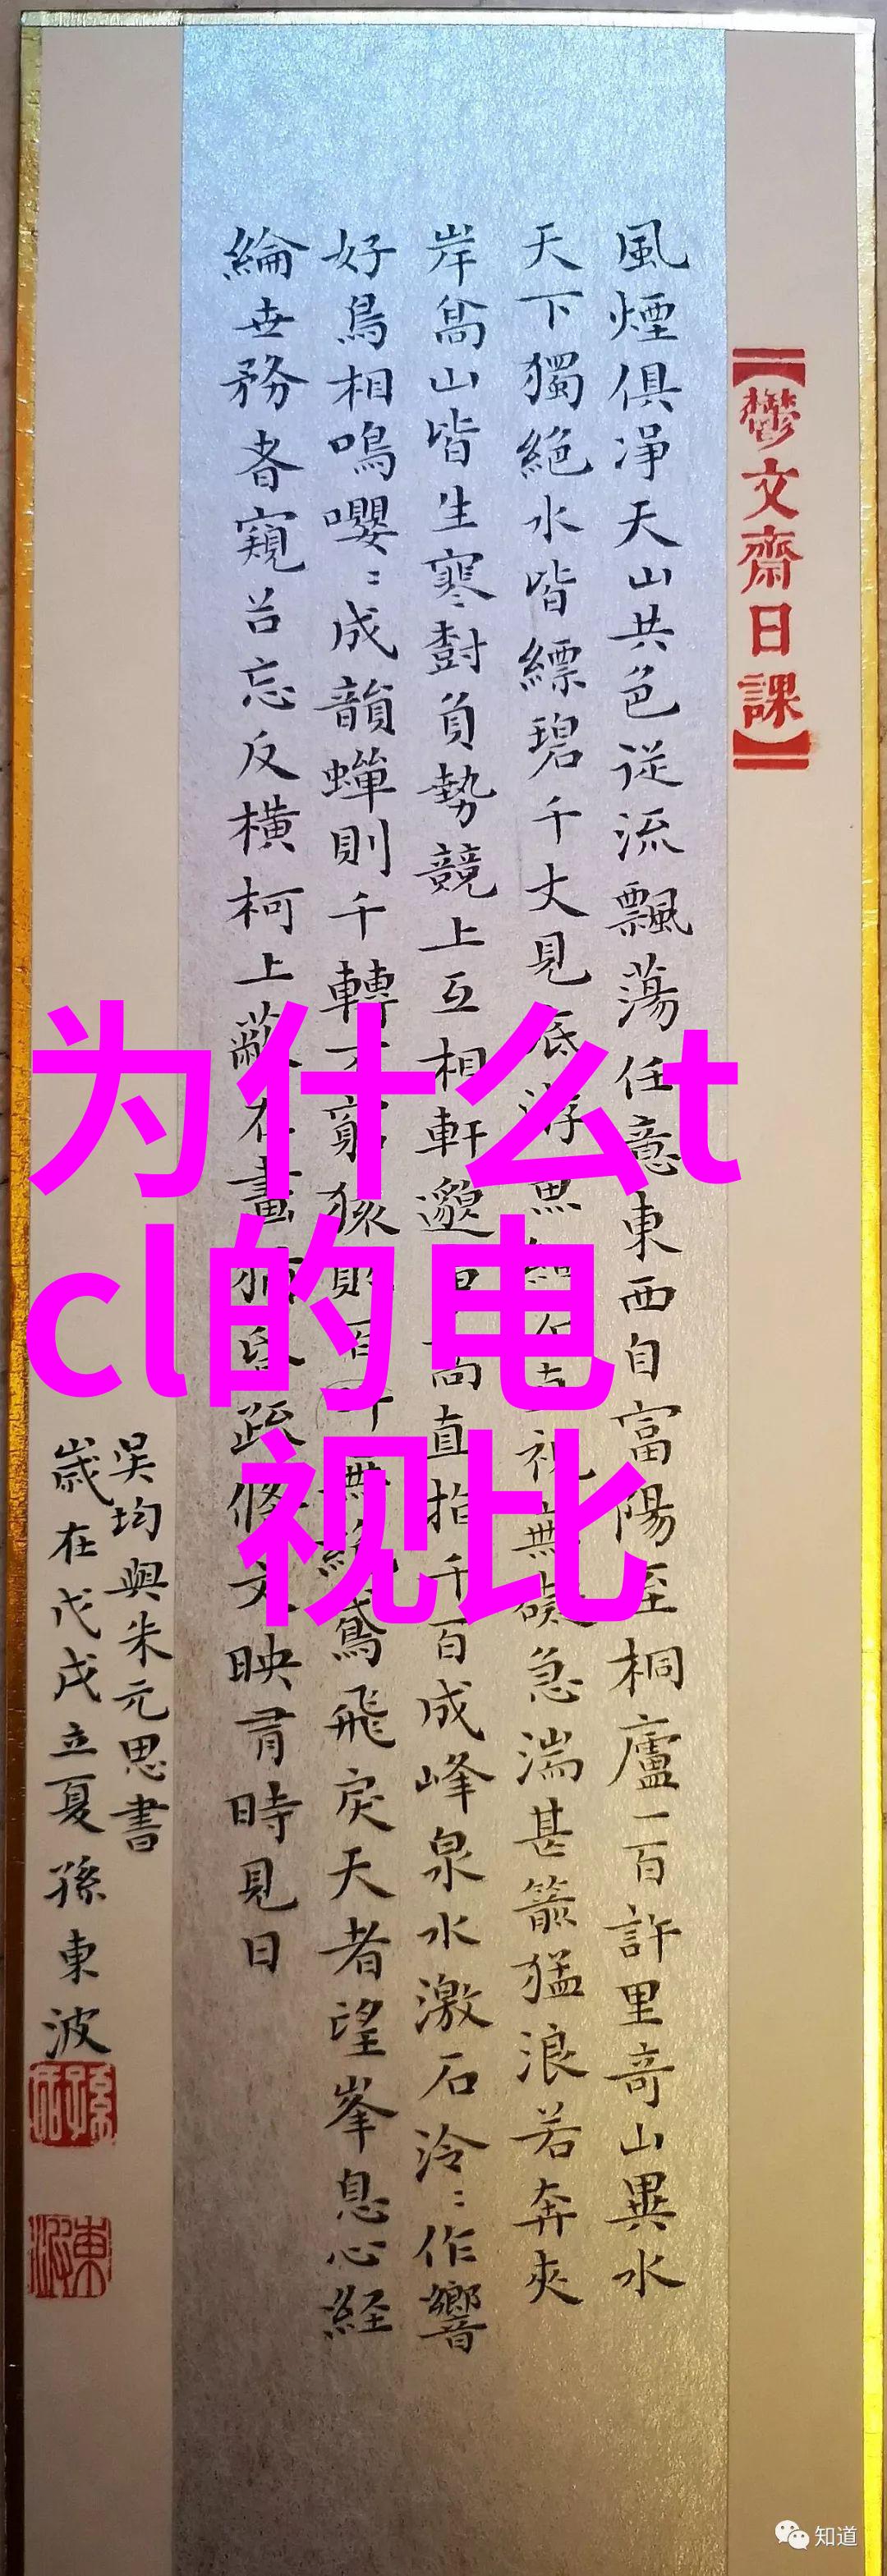 鬱文齋日課
風煙俱淨天山共色從流飄蕩任意東西自富陽至桐廬一百許里奇山異水
天下獨絕水皆縹碧千丈見底游視無礙急湍甚箭猛浪若奔夾
岸高山皆生寒對負勢競上互相軒邈直指千百成峰泉水激石泠〻作響
好鳥相鳴嚶〻成韻蟬則千轉窮猿則百無絕鳶飛戾天者望峯息心経
綸世務者窺谷忘反橫柯上蔽在晝疏條交映有時見日
吳均與朱元思書
歲在戊戌立夏孫東波
为什么t
cl的电
视比
知道